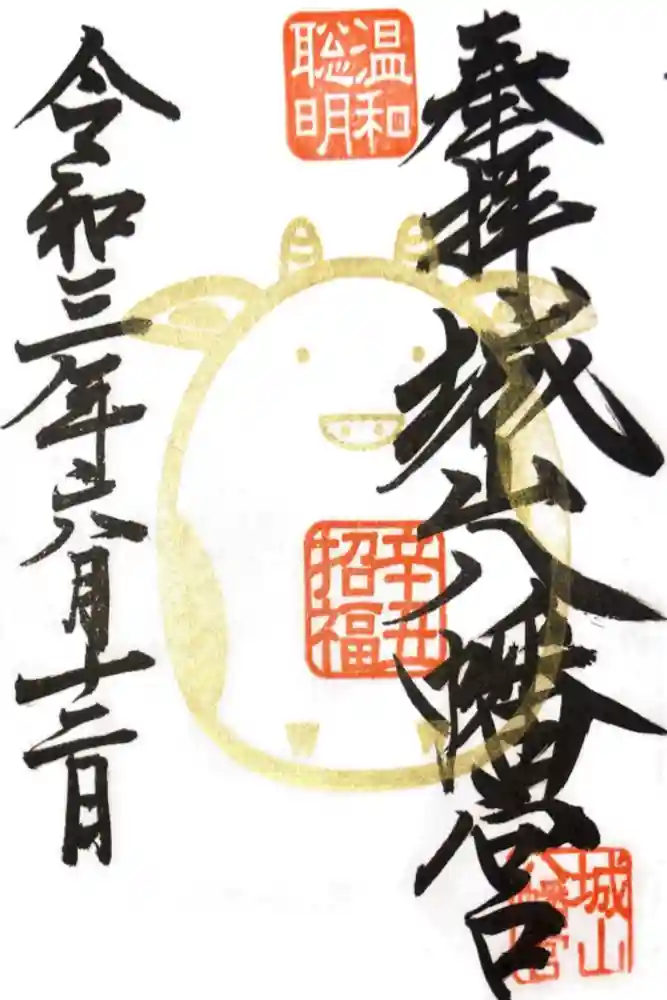 奉拝
城山八幡宮
温和
聡明
辛丑
招福
城山
八幡宮
令和三年六月十二日